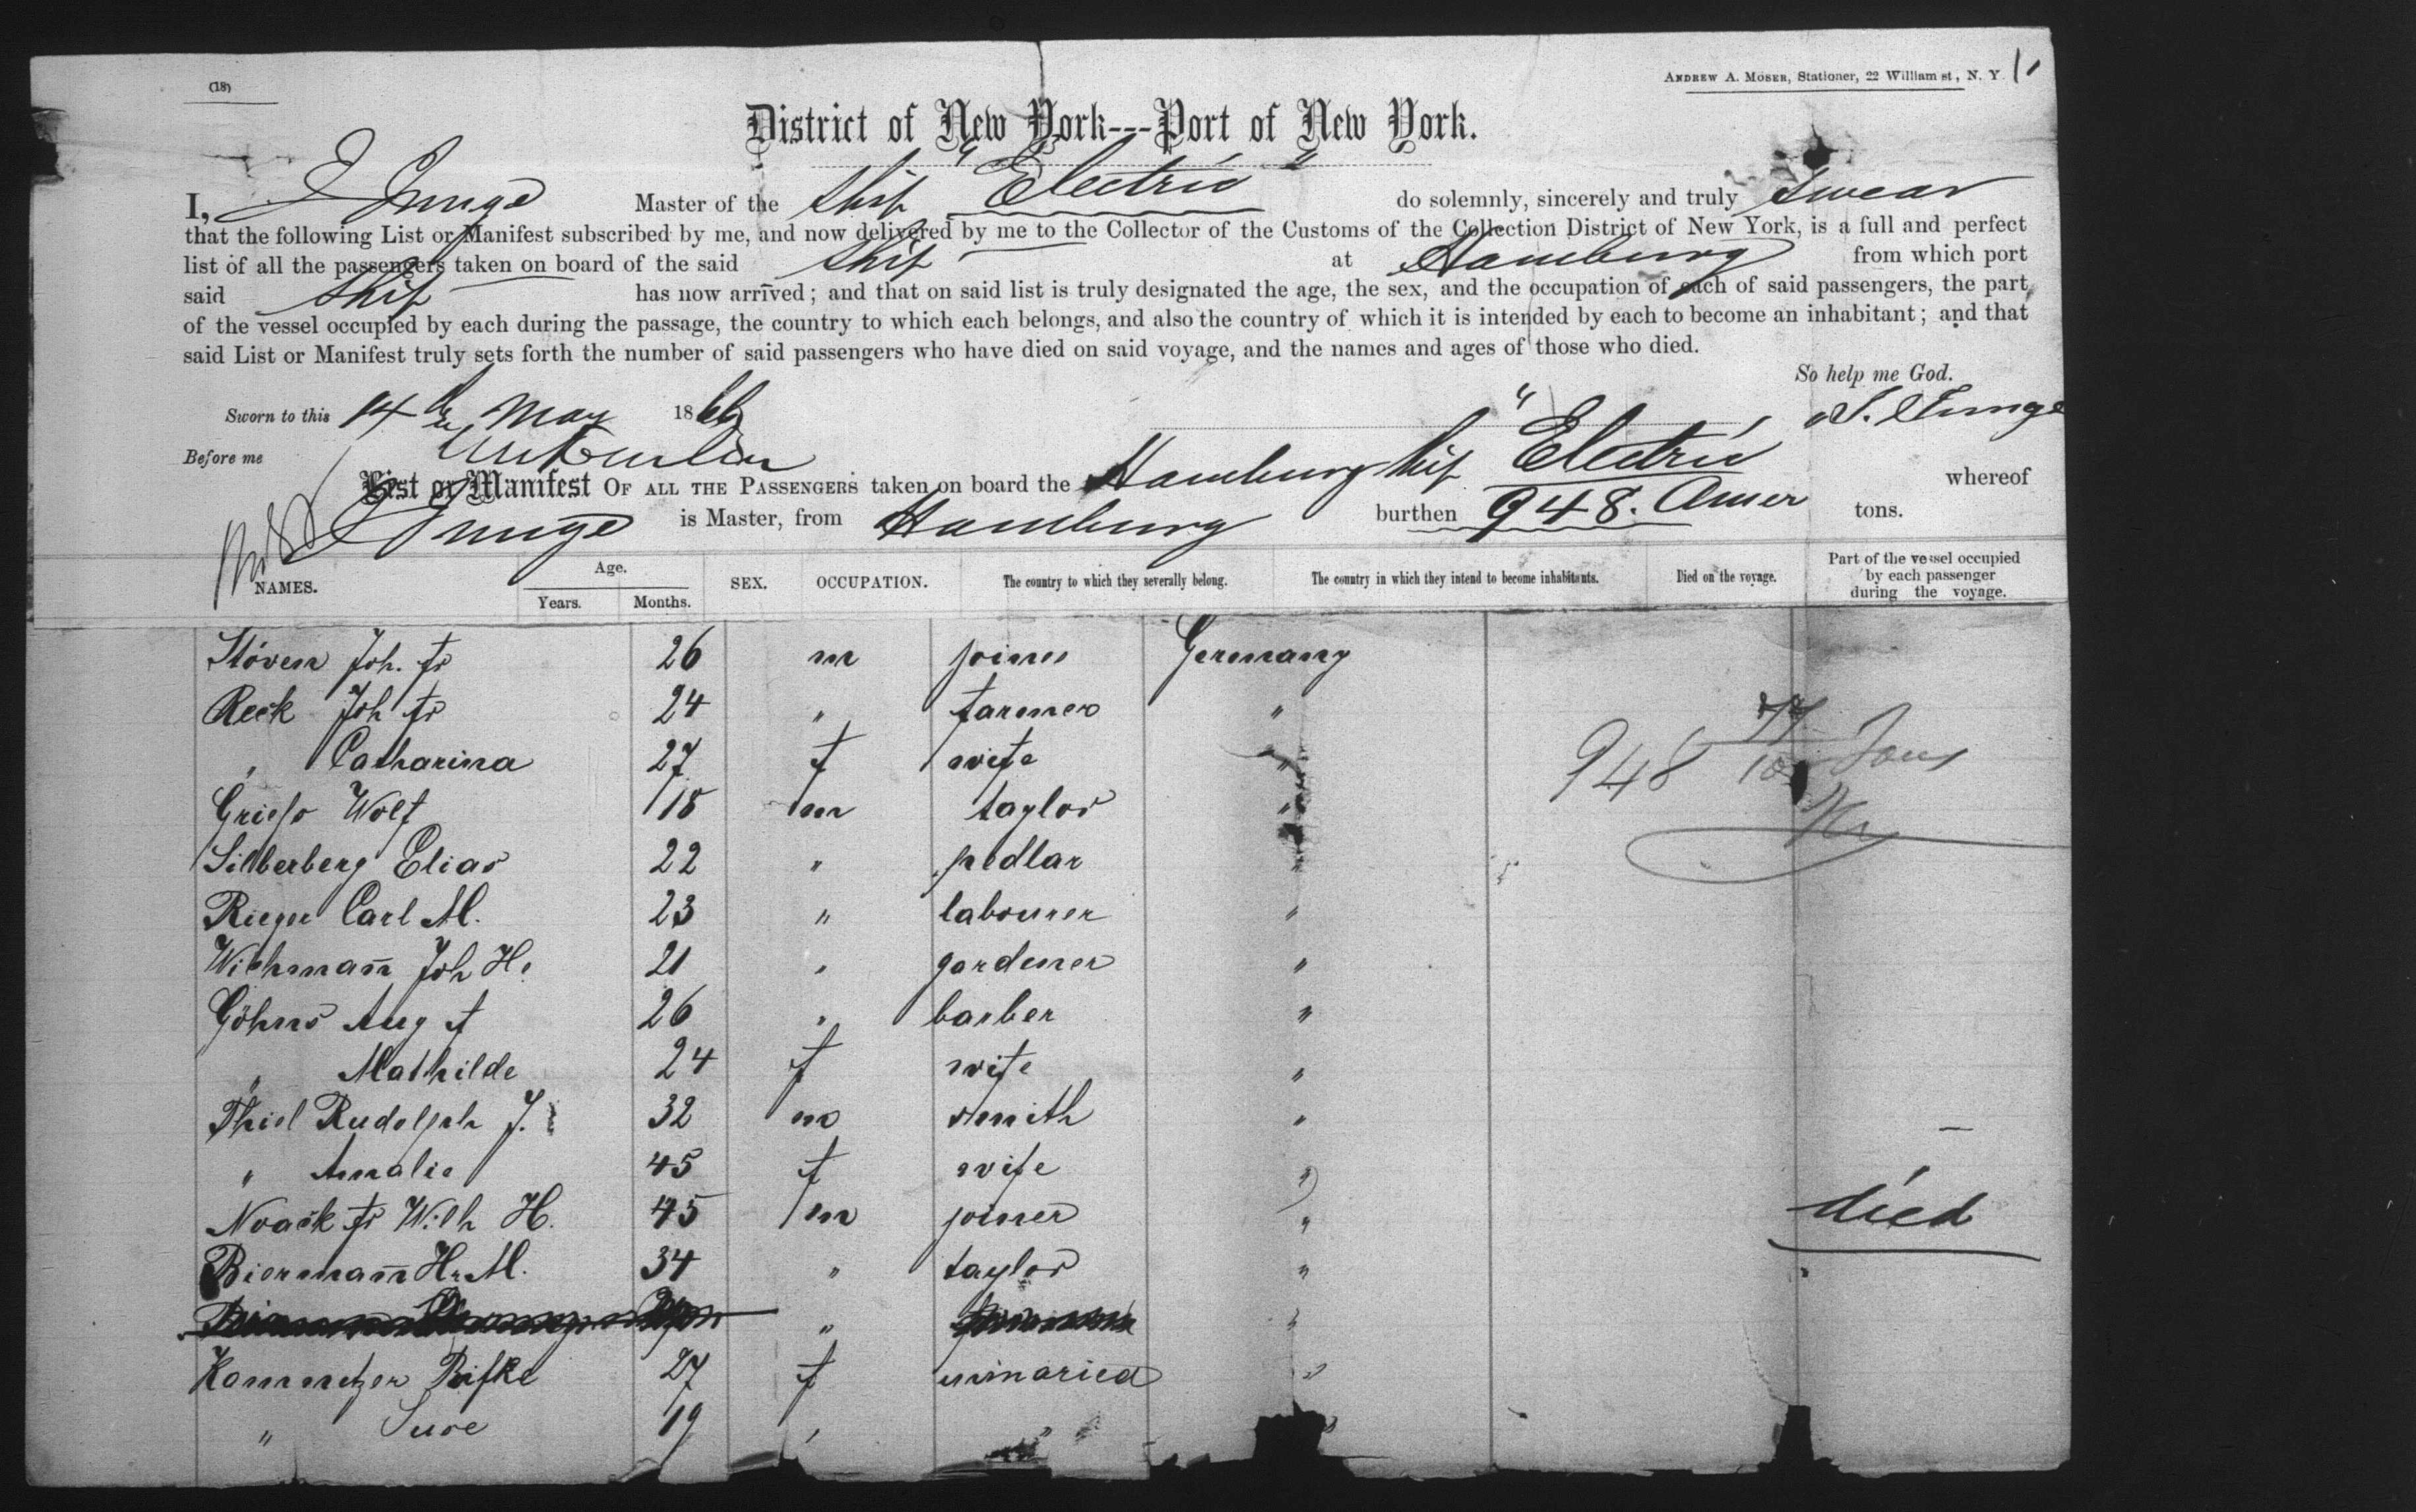 (18)
ANDREW A. MOSER, Stationer, 22 William st, N. Y.
District of New York---Port of New York.
I, J Junge Master of the Ship "Electric" do solemnly, sincerely and truly swear
that the following List or Manifest subscribed by me, and now delivered by me to the Collector of the Customs of the Collection District of New York, is a full and perfect
list of all the passengers taken on board of the said Ship at Hamburg from which port
said Ship has now arrived; and that on said list is truly designated the age, the sex, and the occupation of each of said passengers, the part
of the vessel occupied by each during the passage, the country to which each belongs, and also the country of which it is intended by each to become an inhabitant; and that
said List or Manifest truly sets forth the number of said passengers who have died on said voyage, and the names and ages of those who died.
So help me God.
Sworn to this 14th May 1866 J. Junge
Before me
List or Manifest OF ALL THE PASSENGERS taken on board the Hamburg Ship "Electric" whereof
J Junge is Master, from Hamburg burthen 948. Amer tons.
NAMES. Age. Years. Months. SEX. OCCUPATION. The country to which they severally belong. The country in which they intend to become inhabitants. Died on the voyage. Part of the vessel occupied by each passenger during the voyage.
Stöven Joh. Fr 26 m joiner Germany
Reck Joh Fr 24 " farmer "
" Catharina 27 f wife "
948 Tons
Wolf 18 m taylor "
Silberberg Elias 22 " pedlar "
Rieger Carl M. 23 " labourer "
Wichmann̄ Joh H. 21 " gardener "
Göhns Aug F 26 " barber "
" Mathilde 24 f wife "
Thiel Rudolph J. 32 m smith "
" Amalie 45 f wife "
Noack Fr Wilh H. 45 m joiner " died
Biermann̄ Hr. M. 34 " taylor "
" "
Rifke 27 f unmaried "
" 19 " " "